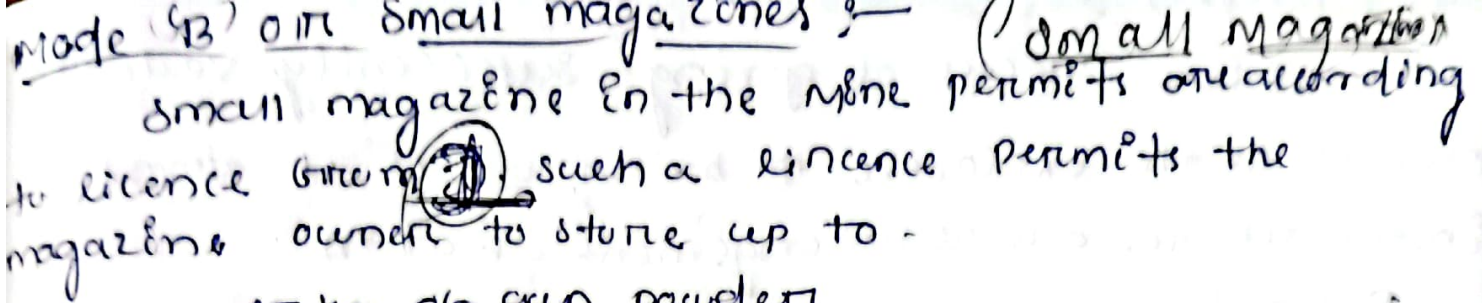 Mode 'B' or Small magazines :- (Small Magazines
Small magazine in the mine permits are according
to licence from such a lincence permits the
magazine owner to store up to -
of gun powder